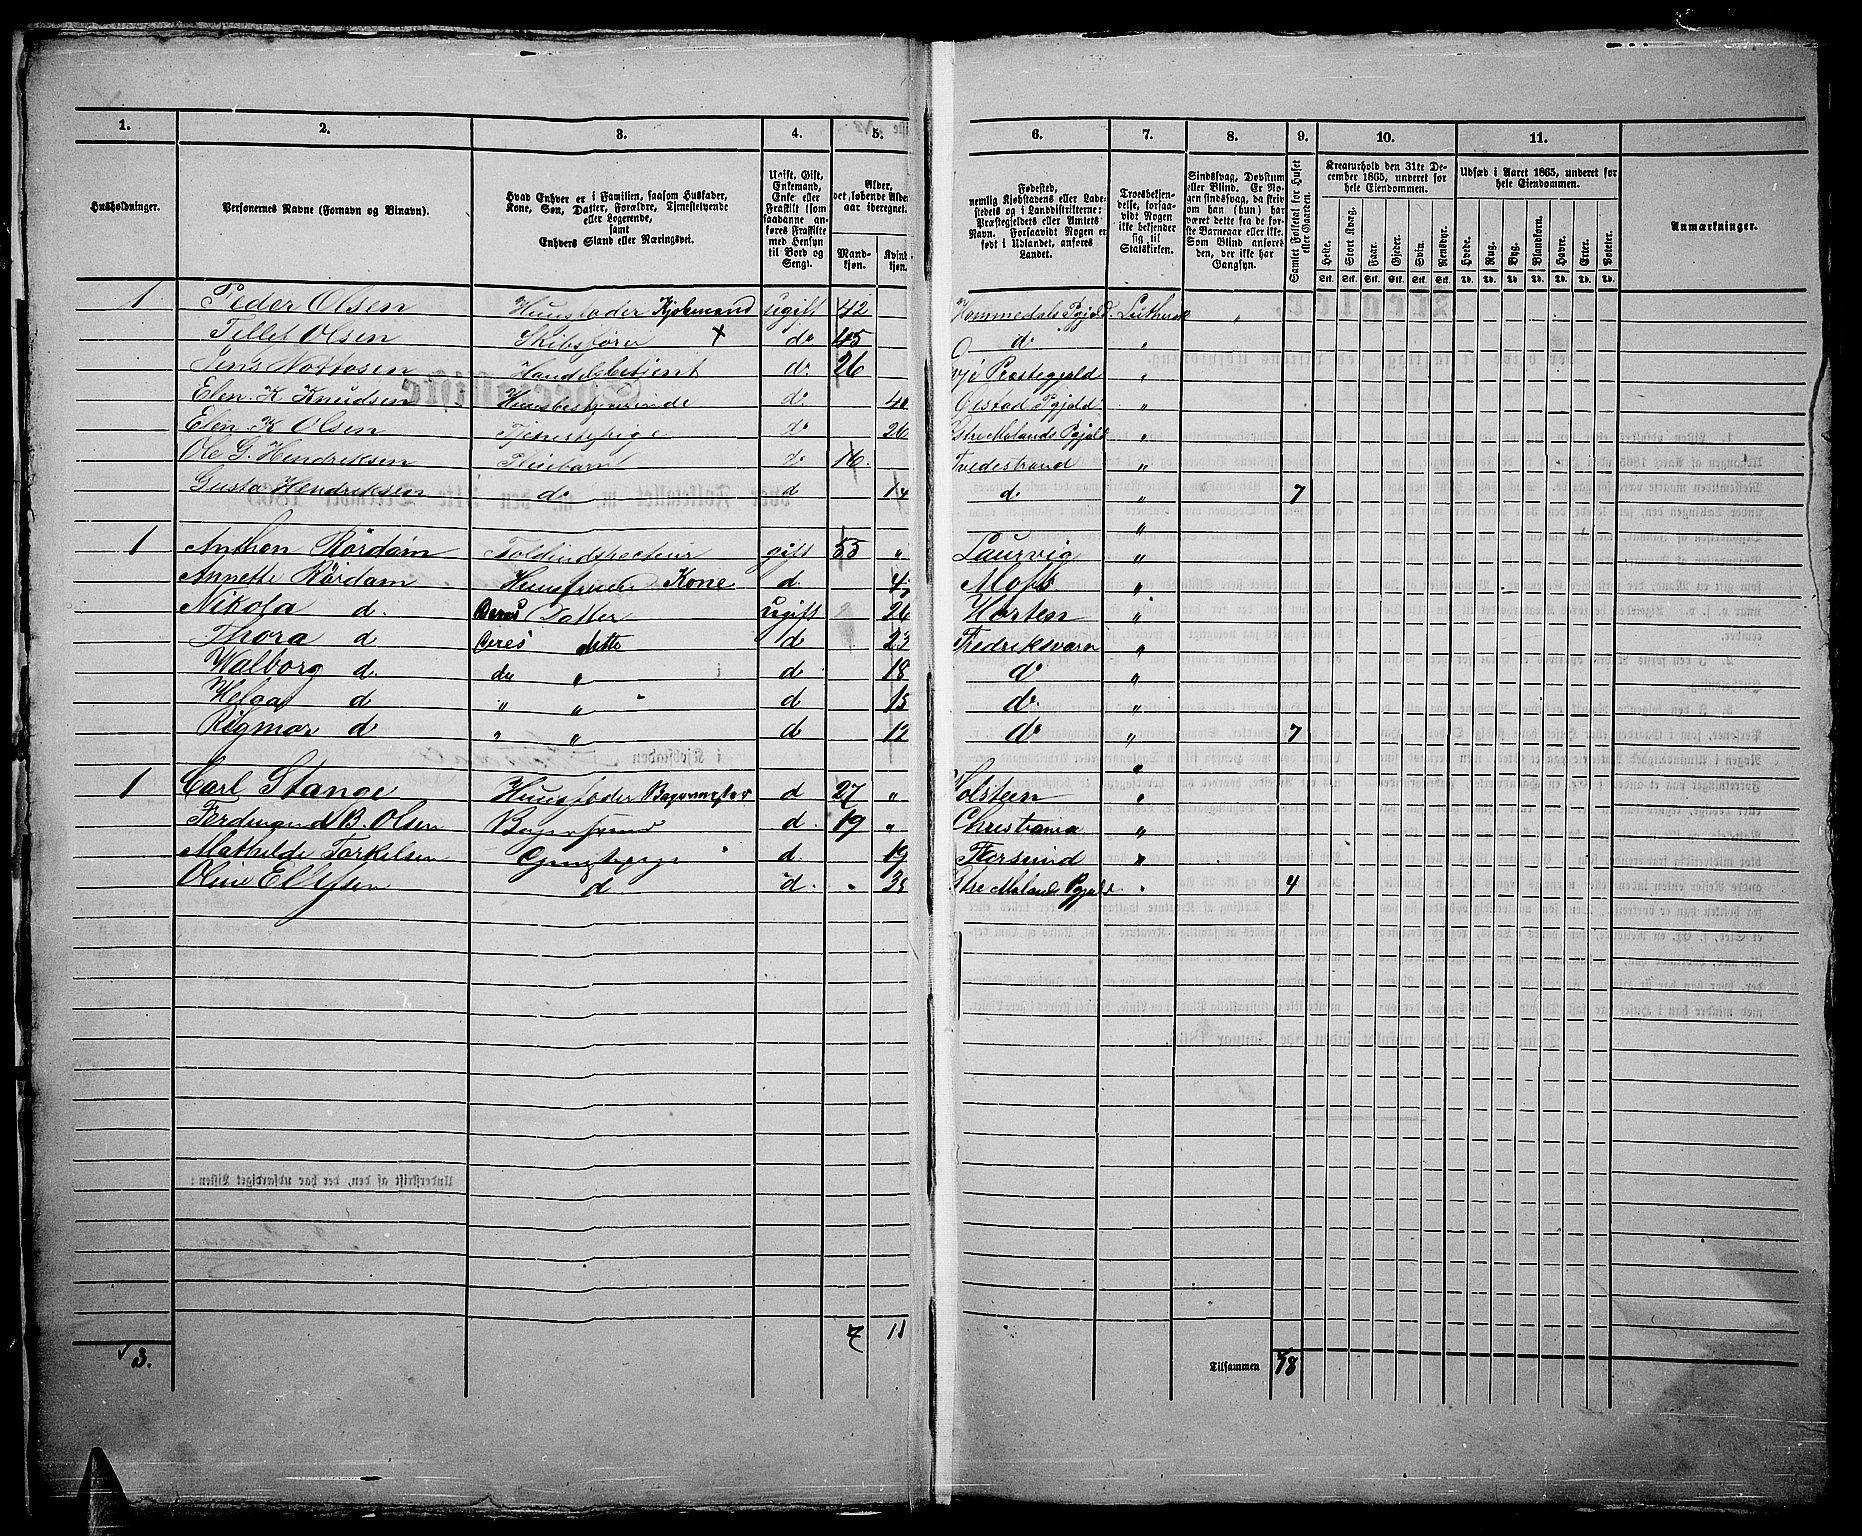 1. 2. 3. 4. 5. 6. 7. 8. 9. 10. 11.
Husholdninger.
Personernes Navne (Fornavn og Binavn).
Hvad Enhver er i Familien, saasom Husfader,
Kone, Søn, Datter, Forældre, Tjenestetyende
eller Logerende,
samt
Enhvers Stand eller Næringsvei.
Ugift, Gift,
Enkemand,
Enke eller
Fraskilt (som
saadanne an-
føres Fraskilte
med Hensyn
til Bord og
Seng).
Alder,
det løbende Alder
aar iberegnet.
Mand-
kjøn.
Kvind
kjøn.
Fødested,
nemlig Kjøbstadens eller Lade-
stedets og i Landdistrikterne:
Præstegjeldets eller Amtets
Navn. Forsaavidt Nogen er
født i Udlandet, anføres
Landet.
Troesbekjen-
delse, forsaa-
vidt Nogen
ikke bekjender
sig til
Statskirken.
Sindssvag, Døvstum
eller Blind. Er No-
gen sindssvag, da skriv
om han (hun) har
været dette fra de før-
ste Barneaar eller ikke.
Som Blind anføres
den, der ikke har
Gangsyn.
Samlet Folketal for Huset
eller Gaarden.
Kreaturhold den 31te De-
cember 1865, underet for
hele Eiendommen.
Heste. Stort Kvæg. Faar. Gjeder. Svin. Rensdyr.
Stk. Stk. Stk. Stk. Stk. Stk.
Udsæd i Aaret 1865, underet for
hele Eiendommen.
Hvede. Rug. Byg. Blandkorn. Havre. Erter. Poteter.
Td. Td. Td. Td. Td. Td. Td.
Anmærkninger.
1 Peder Olsen Huusfader Kjøbmand ugift 42 Hommedals Pgjeld Luthersk "
Tellef Olsen Skibsfører X do 45 do "
Jens Nottosen Handelsbetjent do 26 Præstegjeld "
Elen K Knudsen Huusbestyrerinde do Øiestad Pgjeld "
Elen K Olsen Tjenestepige do 26 Østre Molands Pgjeld "
Ole G. Hendriksen Pleiebarn do 16 Tvedestrand "
Gusta Hendriksen do d 14 do " 7
"
1 Anthon Rördam Toldindspecteur gift 55 " Laurvig "
Annette Rördam Huusfrue Kone d. Moss "
Nikola d. Deres Datter ugift 26 Horten "
Thora d Deres dette d 23 Fredriksværn "
Walborg d. do " d 18 do "
Helga d " " d 15 do "
Rigmor d " " d 12 do " 7
"
1 Carl Stange Huusfader Bagermester d 27 " Holsteen "
Ferdinand B. Olsen Bagersvend d. 19 " Christiania "
Mathilde Torkelsen Tjenestepige d. 19 Flersund "
Oline Ellefsen d d. " Østre Molands Pgjeld " 4
7 11
3.
Tilsammen 18